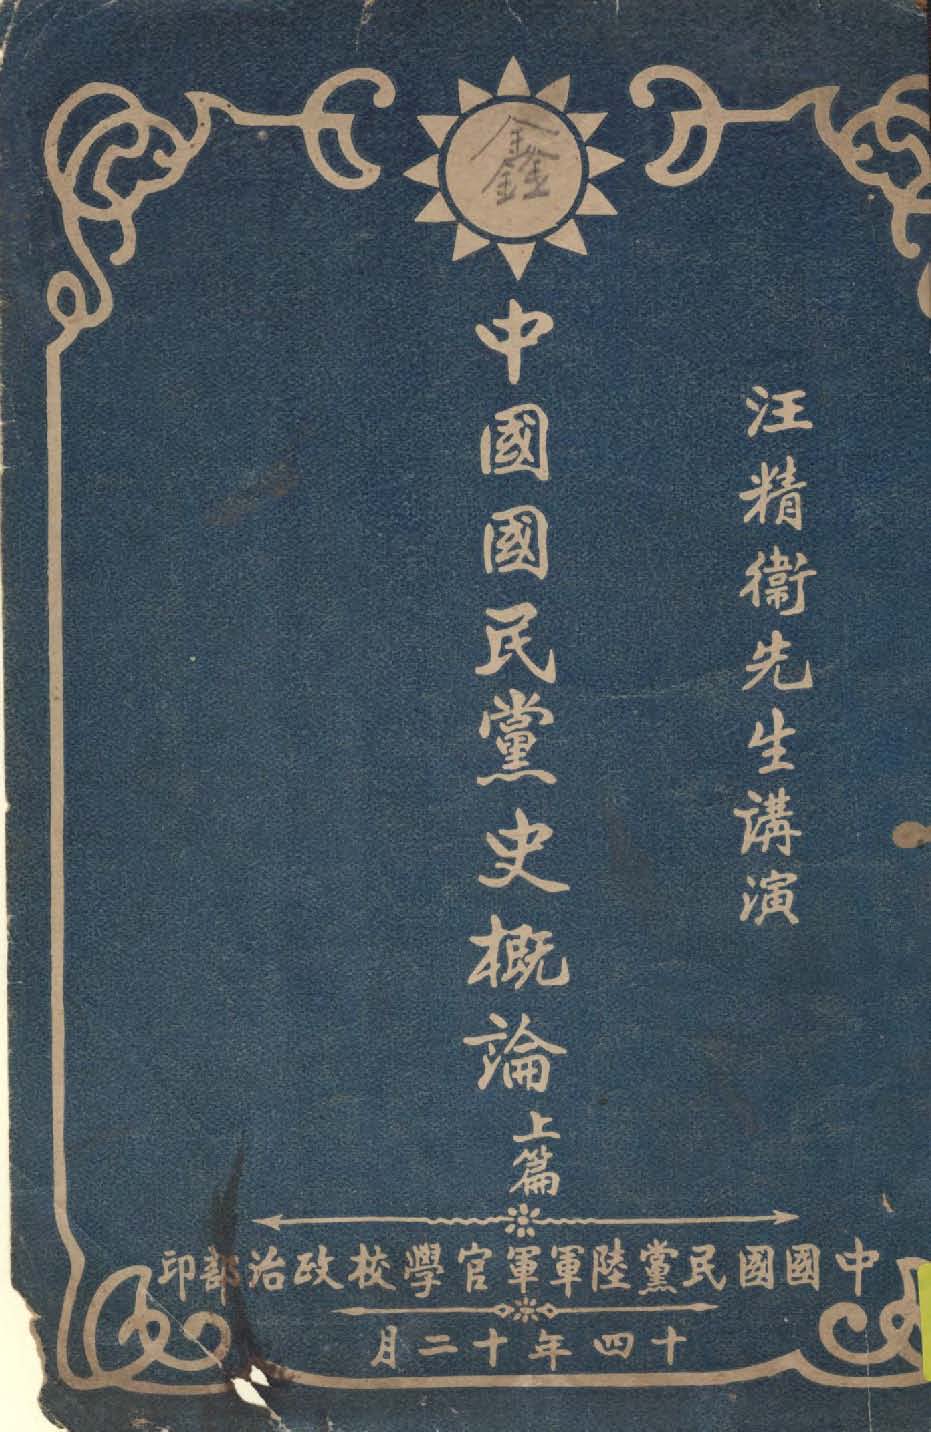 鑫
汪精衞先生講演
中國國民黨史概論上篇
中國國民黨陸軍軍官學校政治部印
十四年十二月